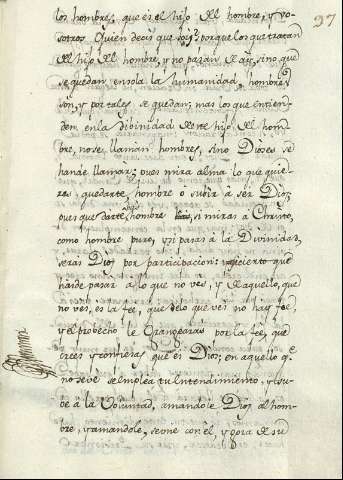 37
los hombres, que es el hijo del hombre, y vo-
sotros Quien decis que soy? porque los que tratan
del hijo del hombre, y no pasan de ay, sino que
se quedan en sola la humanidad, hombres
son, y por tales se quedan; mas los que entien-
dem en la Divinidad de este hijo del hom-
bre, no se llaman hombres, sino Dioses se
han de llamar; pues mira alma lo que quie-
res quedarte hombre o subir à ser Dios,
pues quedarte hombre si miras a Christo,
como hombre puro, y si pasas à la Divinidad,
seras Dios por participacion: y cierto que
has de pasar à lo que no ves, y de aquello, que
no ves, es la fee, que delo que ves no hay fee,
y el probecho le Grangearàs por la fee, que
crees y confiesas que es Dios; en aquello q.
no se vè se emplea tu entendimiento, y su-
be à la Voluntad, amando le Dios al hom-
bre, y amandole, se une con el, y goza de su